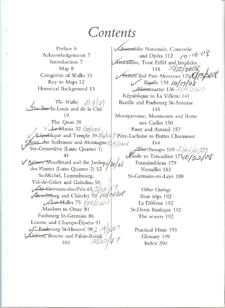 Contents
Preface 6
Acknowledgements 7
Introduction 7
Map 8
Categories of Walks 10
Key to Maps 12
Historical Background 13
The Walks
St-Louis and de la Cité
19
The Quai 28
Le Marais 32
République and Temple 39
The Sorbonne and Montagne
Ste-Geneviève (Latin Quarter 1)
44
Mouffetard and the Jardin
des Plantes (Latin Quarter 2) 52
St-Michel, Luxembourg,
Val-de-Grâce and Gobelins 58
St-Germain-des-Prés 65
Beaubourg and Châtelet 70
Les Halles 75
Madeleine to Opéra 82
Faubourg St-Germain 86
Louvre and Champs-Élysées 91
Faubourg St-Honoré 98
Opéra, Bourse and Palais-Royal
104
Assemblée Nationale, Concorde
and Opéra 112
10-16-08
Trocadéro, Tour Eiffel and Invalides
118
Ternes and Parc Monceau 125
Pigalle 130
Montmartre 136
République to La Villette 141
Bastille and Faubourg St-Antoine
145
Montparnasse, Montsouris and Butte
aux Cailles 150
Passy and Auteuil 157
Père-Lachaise to Buttes Chaumont
164
The Passages 169
Étoile to Trocadéro 175
Fontainebleau 179
Versailles 183
St-Germain-en-Laye 188
Other Outings:
Boat trips 192
La Défense 192
St-Denis Basilique 192
The sewers 192
Practical Hints 193
Glossary 199
Index 200